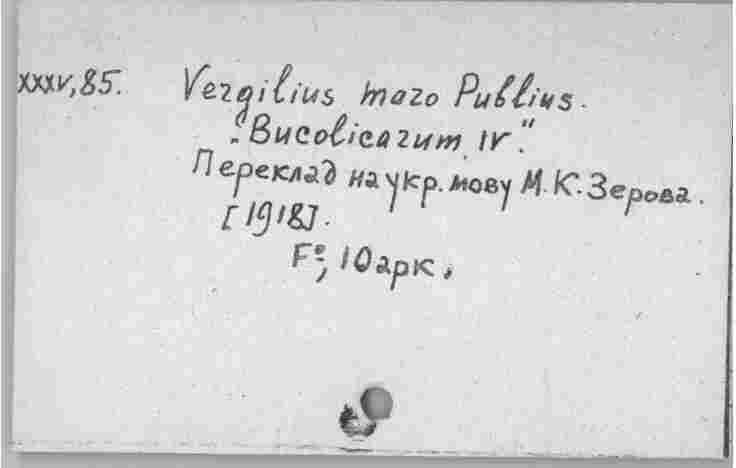 XXXV,85. Vergilius maro Publius.
„Bucolicarum IV."
Переклад на укр. мову М.К. Зерова.
[1918].
F°, 10 арк.